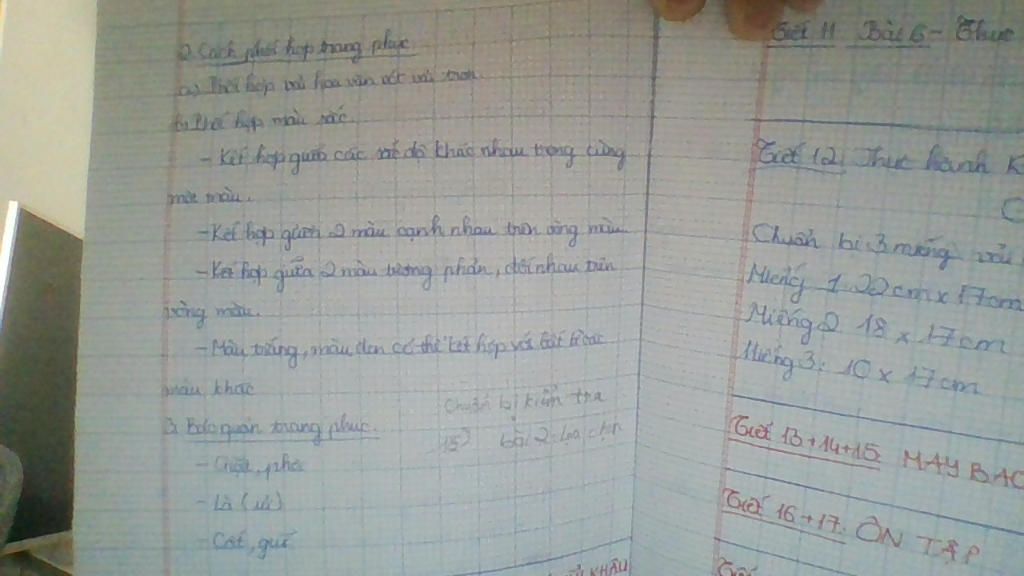 2. Cách phối hợp trang phục
a) Phối hợp vải hoa văn với vải trơn
b) Phối hợp màu sắc.
- Kết hợp giữa các sắc độ khác nhau trong cùng
một màu.
- Kết hợp giữa 2 màu cạnh nhau trên vòng màu
- Kết hợp giữa 2 màu tương phản, đối nhau trên
vòng màu.
- Màu trắng, màu đen có thể kết hợp với bất kì các
màu khác
Chuẩn bị kiểm tra
15' bài 2: lựa chọn
3. Bảo quản trang phục.
- Giặt, phơi
- Là (ủi)
- Cất, giữ
KHÂU
Tiết 11 Bài 6 - Thực
Tiết 12: Thực hành K
C
Chuẩn bị 3 miếng vải
Miếng 1. 22cm x 17cm
Miếng 2 18 x 17cm
Miếng 3: 10 x 17cm
Tiết 13+14+15 MAY BAO
Tiết 16+17: ÔN TẬP
Tiết